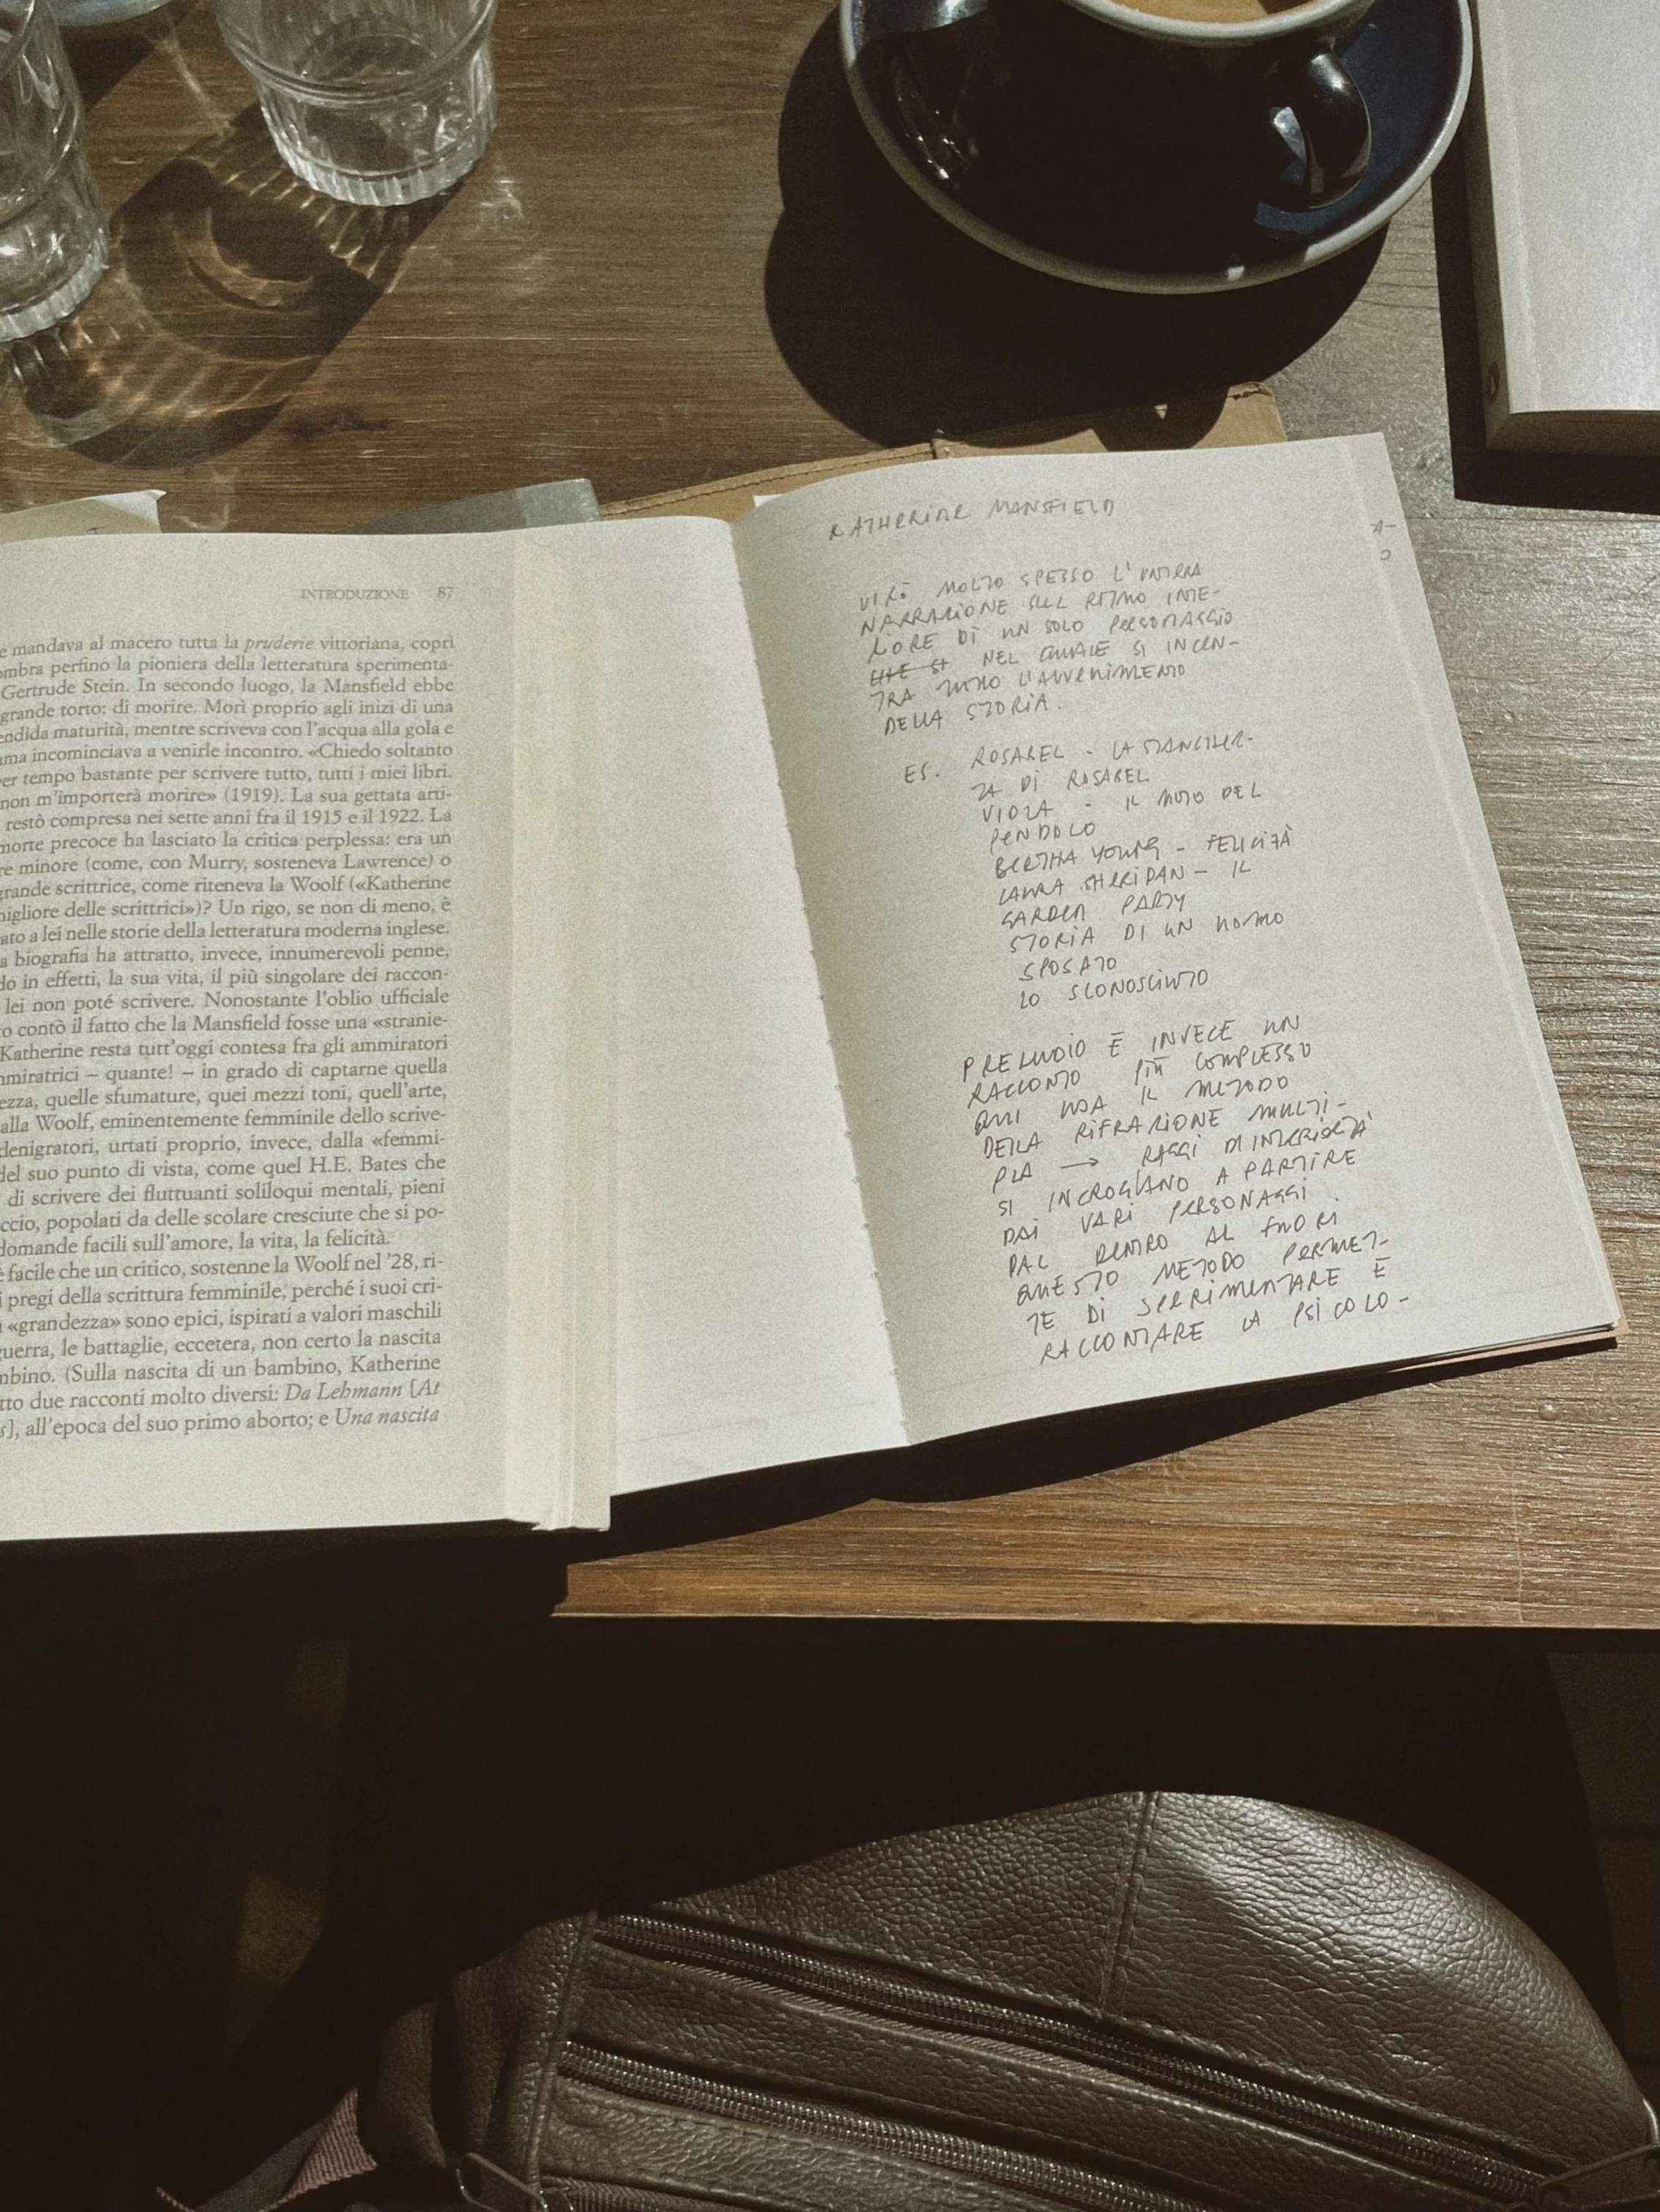 INTRODUZIONE 87
e mandava al macero tutta la pruderie vittoriana, coprì
ombra perfino la pioniera della letteratura sperimenta-
Gertrude Stein. In secondo luogo, la Mansfield ebbe
grande torto: di morire. Morì proprio agli inizi di una
endida maturità, mentre scriveva con l'acqua alla gola e
ma incominciava a venirle incontro. «Chiedo soltanto
er tempo bastante per scrivere tutto, tutti i miei libri.
non m'importerà morire» (1919). La sua gettata arti-
restò compresa nei sette anni fra il 1915 e il 1922. La
morte precoce ha lasciato la critica perplessa: era un
re minore (come, con Murry, sosteneva Lawrence) o
grande scrittrice, come riteneva la Woolf («Katherine
migliore delle scrittrici»)? Un rigo, se non di meno, è
ato a lei nelle storie della letteratura moderna inglese.
a biografia ha attratto, invece, innumerevoli penne,
do in effetti, la sua vita, il più singolare dei raccon-
lei non poté scrivere. Nonostante l'oblio ufficiale
o contò il fatto che la Mansfield fosse una «stranie-
Katherine resta tutt'oggi contesa fra gli ammiratori
mmiratrici – quante! – in grado di captarne quella
ezza, quelle sfumature, quei mezzi toni, quell'arte,
alla Woolf, eminentemente femminile dello scrive-
denigratori, urtati proprio, invece, dalla «femmi-
del suo punto di vista, come quel H.E. Bates che
di scrivere dei fluttuanti soliloqui mentali, pieni
ccio, popolati da delle scolare cresciute che si po-
domande facili sull'amore, la vita, la felicità.
è facile che un critico, sostenne la Woolf nel '28, ri-
i pregi della scrittura femminile, perché i suoi cri-
«grandezza» sono epici, ispirati a valori maschili
guerra, le battaglie, eccetera, non certo la nascita
mbino. (Sulla nascita di un bambino, Katherine
tto due racconti molto diversi: Da Lehmann [At
s], all'epoca del suo primo aborto; e Una nascita
KATHERINE MANSFIELD
MOLTO SPESSO L'INTERA
NARRAZIONE SUL RITMO INTE-
RIORE DI UN SOLO PERSONAGGIO
CHE SI NEL QUALE SI INCEN-
TRA TUTTO L'AVVENIMENTO
DELLA STORIA.
ES. ROSABEL - LA STANCHEZ-
ZA DI ROSABEL
VIOLA - IL MOTO DEL
PENDOLO
BERTHA YOUNG - FELICITÀ
LAURA SHERIDAN - IL
GARDEN PARTY
STORIA DI UN UOMO
SPOSATO
LO SCONOSCIUTO
PRELUDIO È INVECE UN
RACCONTO PIÙ COMPLESSO
QUI USA IL METODO
DELLA RIFRAZIONE MULTI-
PLA → RAGGI D'INTERIORITÀ
SI INCROCIANO A PARTIRE
DAI VARI PERSONAGGI.
DAL DENTRO AL FUORI
QUESTO METODO PERMET-
TE DI SPERIMENTARE E
RACCONTARE LA PSICOLO-